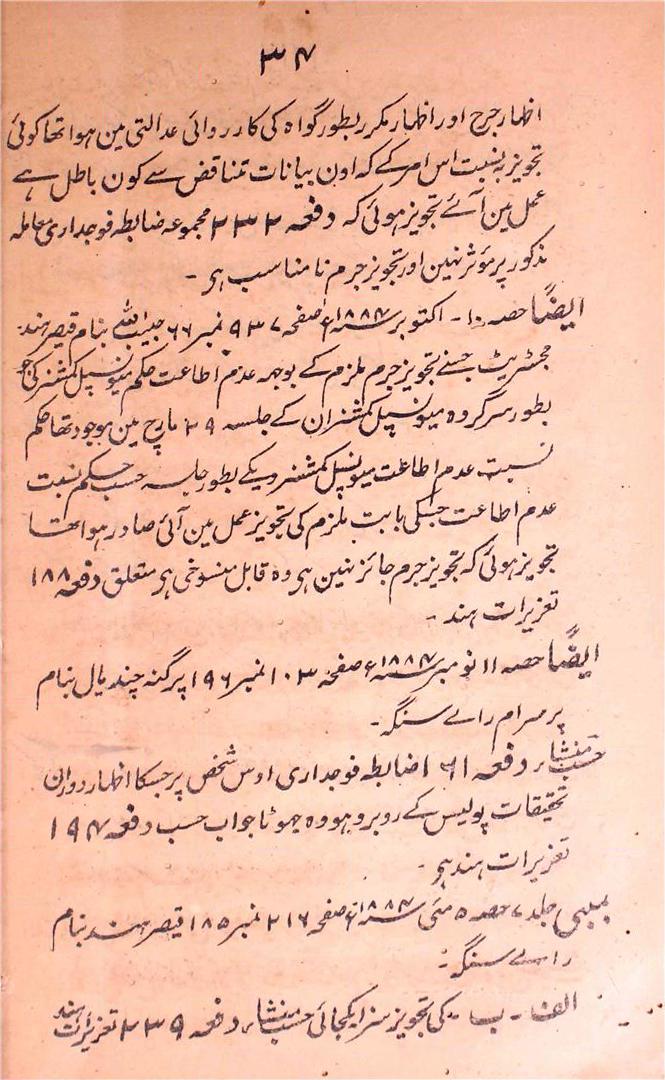 ۳۴
اظہار جرح اور اظہار مکرر بطور گواہ کی کارروائی عدالتی مین ہوا تھا کوئی
تجویز بہ نسبت اس امر کے کہ اون بیانات تناقض سے کون باطل ہے
عمل مین آئے تجویز ہوئی کہ دفعہ ۲۳۲ مجموعہ ضابطہ فوجداری معاملہ
مذکور پر مؤثر نہین اور تجویز جرم نامناسب ہی ۔
ایضًا حصہ ۱۰ ۔ اکتوبر ۱۸۸۴ء صفحہ ۹۳۷ نمبر ۶۶ حبیب اللہ بنام قیصر ہند
مجسٹریٹ جسنے تجویز جرم ملزم کے بوجہ عدم اطاعت حکم میونسپل کمشنر کی جو
بطور سرگروہ میونسپل کمشنران کے جلسہ ۲۹ مارچ مین موجود تھا حکم
نسبت عدم اطاعت میونسپل کمشنر دیکے بطور جلسہ حسب حکم نسبت
عدم اطاعت جسکی بابت ملزم کی تجویز عمل مین آئی صادر ہوا تھا
تجویز ہوئی کہ تجویز جرم جائز نہین ہی وہ قابل منسوخی ہی متعلق دفعہ ۱۸۸
تعزیرات ہند ۔
ایضًا حصہ ۱۱ نومبر ۱۸۸۴ء صفحہ ۱۰۳ نمبر ۱۹۶ پرگنہ چندیال بنام
پرمسرام راے سنگہ ۔
حسب منشاء دفعہ ۱۶۱ ضابطہ فوجداری اوس شخص پر جسکا اظہار دوران
تحقیقات پولیس کے روبرو ہو وہ جھوٹا جواب حسب دفعہ ۱۹۴
تعزیرات ہند ہی ۔
بمبئی جلد ۷ حصہ ۵ مئی ۱۸۸۴ء صفحہ ۲۱۶ نمبر ۱۸۵ قیصر ہند بنام
راے سنگہ ۔
الف ۔ ب ۔ کی تجویز سزا یکجائی حسب منشاء دفعہ ۲۳۹ تعزیرات ہند